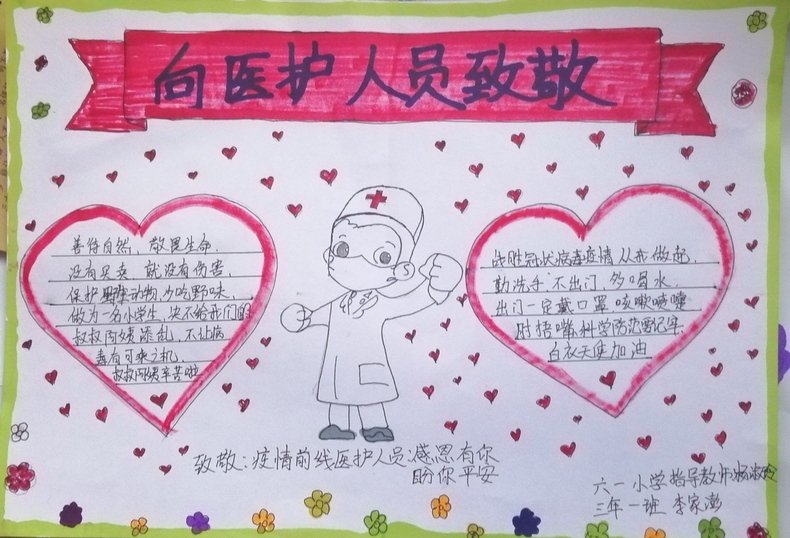 向医护人员致敬
善待自然，敬畏生命.
没有买卖 就没有伤害，
保护野生动物，勿吃野味，
做为一名小学生，决不给我们的
叔叔阿姨添乱，不让病
毒有可乘之机，
叔叔阿姨辛苦啦
战胜冠状病毒疫情 从我做起.
勤洗手 不出门，多喝水.
出门一定戴口罩 咳嗽喷嚏
时捂嘴 科学防范需记牢
白衣天使加油
致敬：疫情前线医护人员：感恩有你
盼你平安
六一小学指导教师
三年一班 李家澎